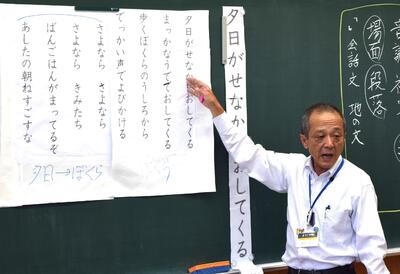 場面 段落
会話文 地の文
夕日がせなか おしてくる
夕日がせなか おしてくる
まっかなうででおしてくる
歩くぼくらのうしろから
でっかい声でよびかける
さよなら さよなら
さよなら きみたち
ばんごはんがまってるぞ
あしたの朝ねすごすな
夕日→ぼくら